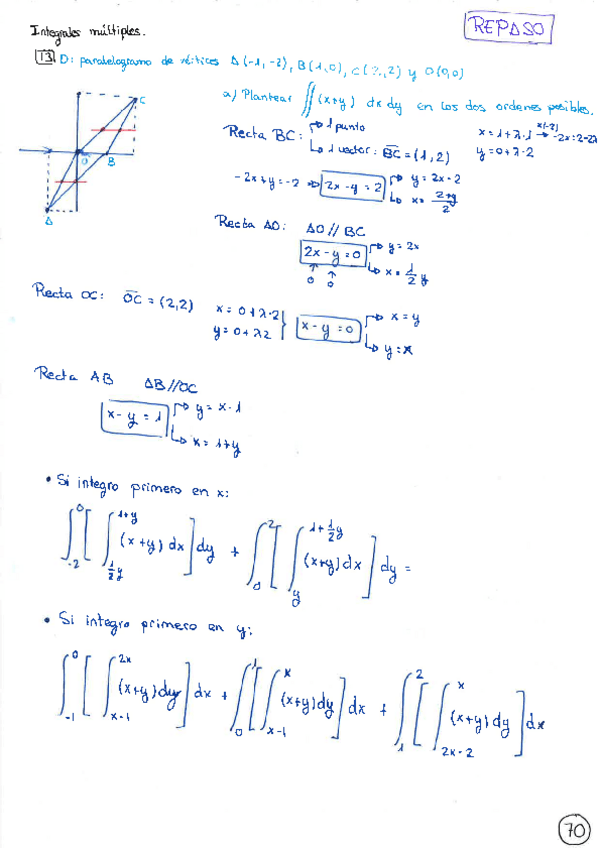 Integrales múltiples.
REPASO
13 D: paralelogramo de vértices A(-1,-2), B(1,0), C(2,2) y O(0,0)
a) Plantear ∬(x+y) dx dy en los dos ordenes posibles.
C
O
B
A
Recta BC: → 1 punto
↳ 1 vector: BC = (1,2)
x = 1+λ·1 x(-2) → -2x = 2-2λ
y = 0+λ·2
-2x+y = -2 ⇒ 2x-y = 2 → y = 2x-2
↳ x = (2+y)/2
Recta AO: AO // BC
2x-y = 0 → y = 2x
↳ x = 1/2 y
0 0
Recta OC: OC = (2,2) x = 0+λ·2
y = 0+λ2 } x-y = 0 → x = y
↳ y = x
Recta AB AB // OC
x-y = 1 → y = x-1
↳ x = 1+y
• Si integro primero en x:
∫_{-2}^{0} [ ∫_{1/2 y}^{1+y} (x+y) dx ] dy + ∫_{0}^{2} [ ∫_{y}^{1+1/2 y} (x+y) dx ] dy =
• Si integro primero en y:
∫_{-1}^{0} [ ∫_{x-1}^{2x} (x+y) dy ] dx + ∫_{0}^{1} [ ∫_{x-1}^{x} (x+y) dy ] dx + ∫_{1}^{2} [ ∫_{2x-2}^{x} (x+y) dy ] dx
70